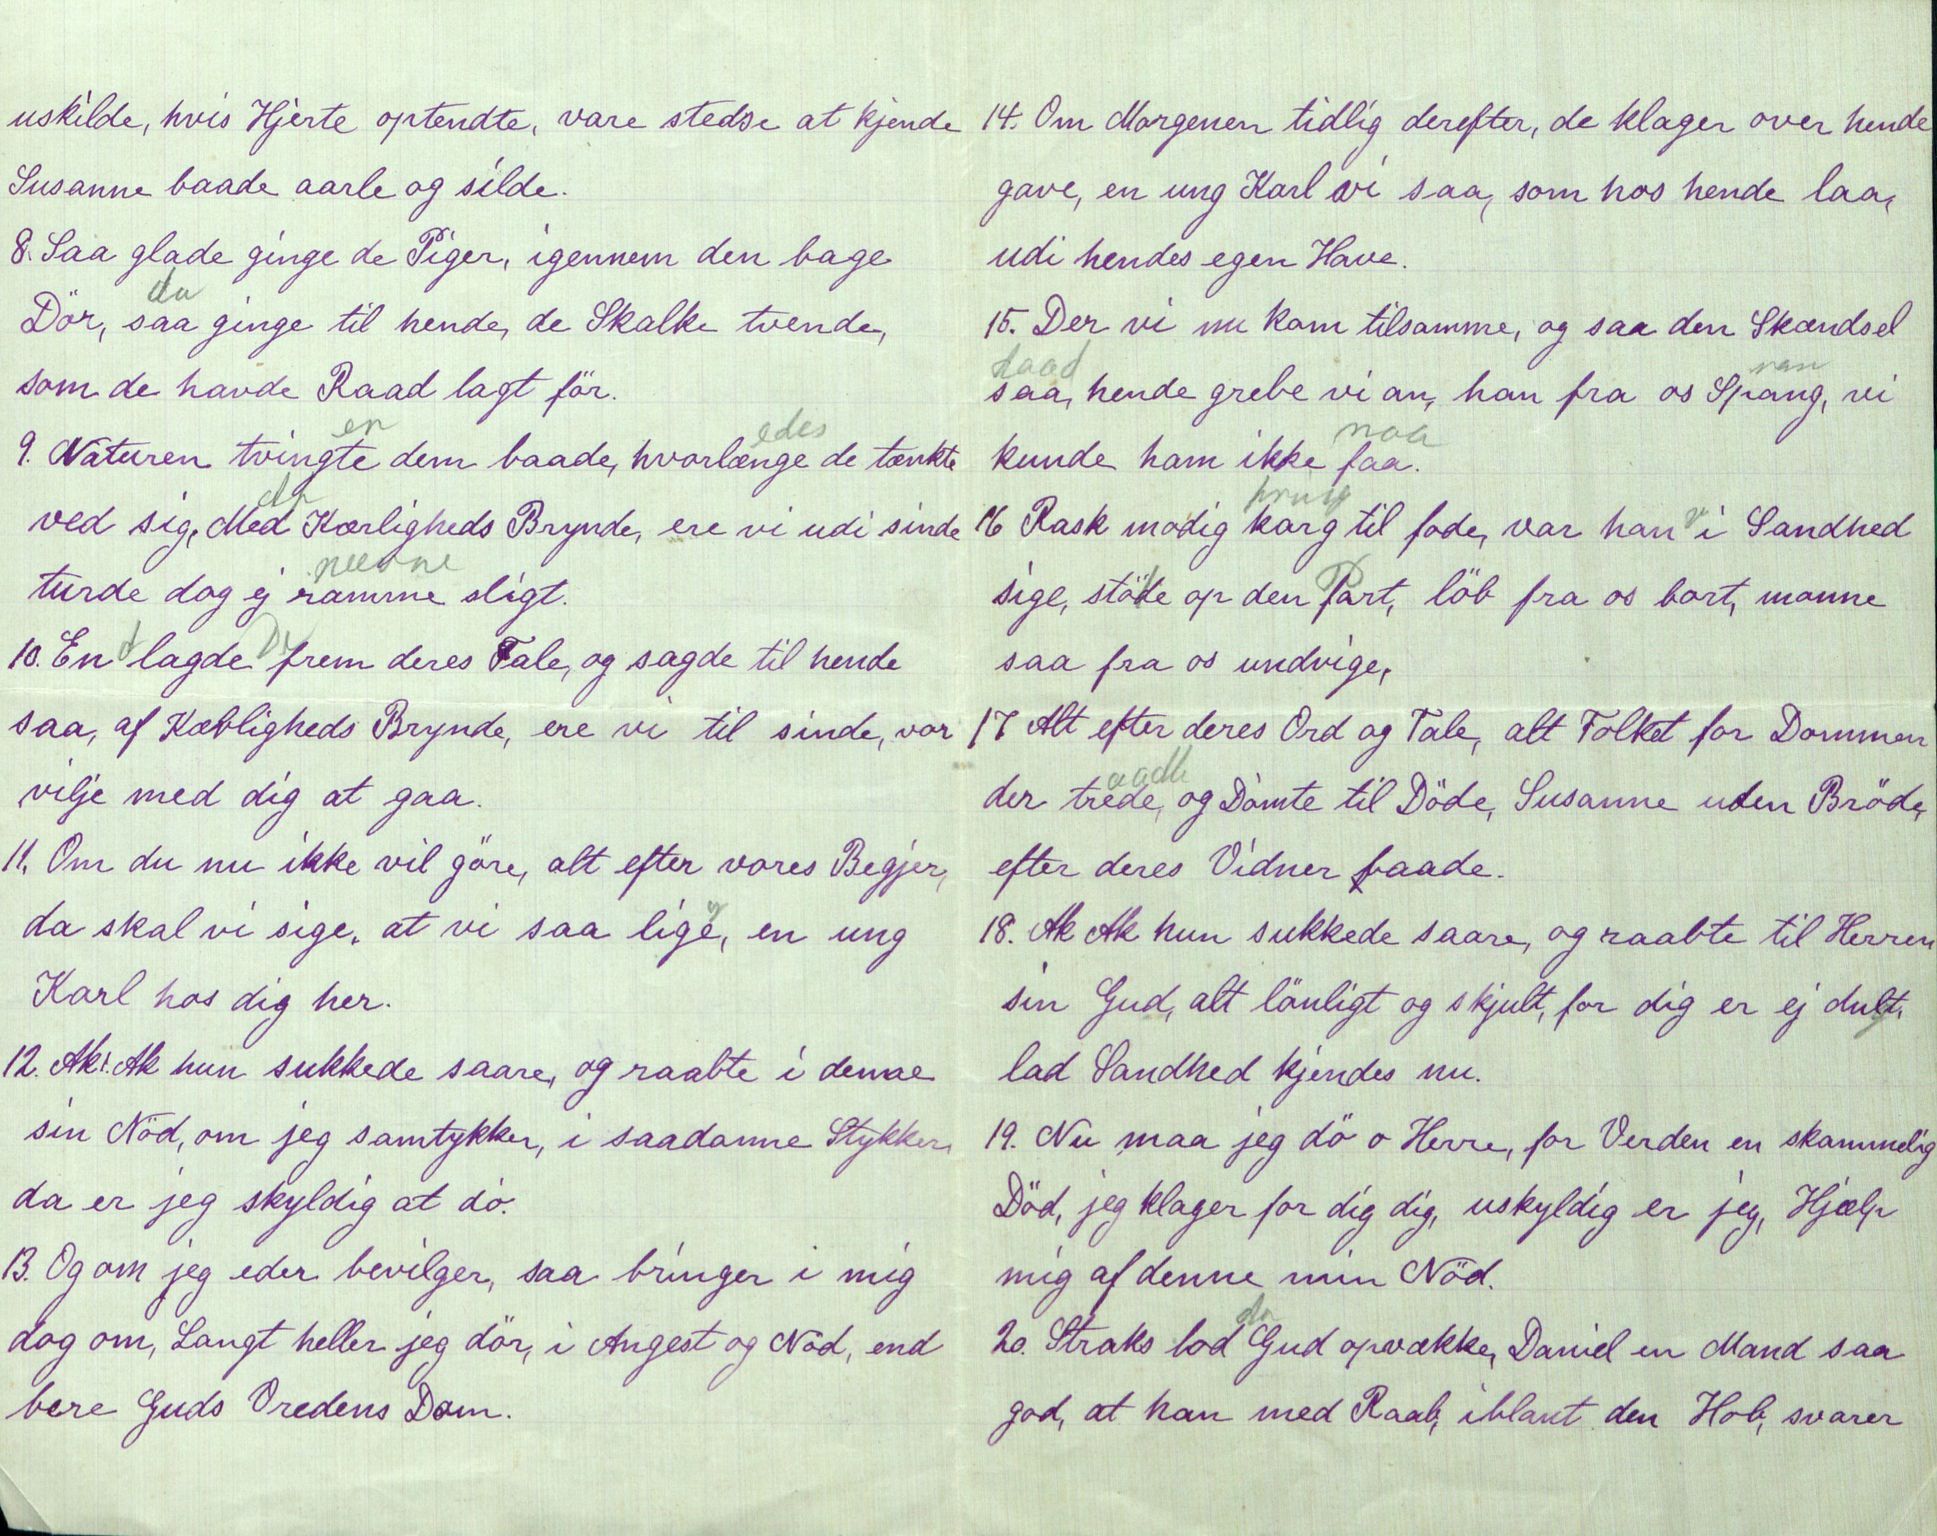 uskilde, hvis Hjerte optendte, vare stedse at kjende
Susanne baade aarle og silde.
8. Saa glade ginge de Piger, igennem den bage
da
Dör, saa ginge til hende, de Skalke tvende,
som de havde Raad lagt för.
en edes
9. Naturen tvingte dem baade, hvorlænge de tænkte
ved sig, Med Kærligheds Brynde, ere vi udi sinde
nævne
turde dog ej ramme sligt.
10. En lagde frem deres Tale, og sagde til hende
saa, af Kæbligheds Brynde, ere vi til sinde, vor
vilje med dig at gaa.
11. Om du nu ikke vil göre, alt efter vores Begjer,
da skal vi sige, at vi saa lige, en ung
Karl hos dig her.
12. Ak! Ak hun sukkede saare, og raabte i denne
sin Nöd, om jeg samtykker, i saadanne Stykker,
da er jeg skyldig at dö.
13. Og om jeg eder bevilger, saa bringer i mig
dog om, Langt heller jeg dör, i Angest og Nöd, end
bere Guds Vredens Dom.
14. Om Morgenen tidlig derefter, de klager over hende
gave, en ung Karl vi saa, som hos hende laa,
udi hendes egen Have.
15. Der vi nu kom tilsamme, og saa den Skændsel
saa, hende grebe vi an, han fra os Spang, vi
naa
kunde ham ikke faa.
16 Rask modig karg til fode, var han i Sandhed
sige, stödte op den Port, löb fra os bort, monne
saa fra os undvige,
17 Alt efter deres Ord og Tale, alt Folket for Dommen
der trede, og Dömte til Döde, Susanne uden Bröde,
efter deres Vidner baade.
18. Ak Ak hun sukkede saare, og raabte til Herren
sin Gud, alt lönligt og skjult, for dig er ej dult,
lad Sandhed kjendes nu.
19. Nu maa jeg dö o Herre, for Verden en skammelig
Död, jeg klager for dig dig, uskyldig er jeg, Hjælp
mig af denne min Nöd.
da
20. Straks lod Gud opvække, Daniel en Mand saa
god, at han med Raab, iblant den Hob, svarer